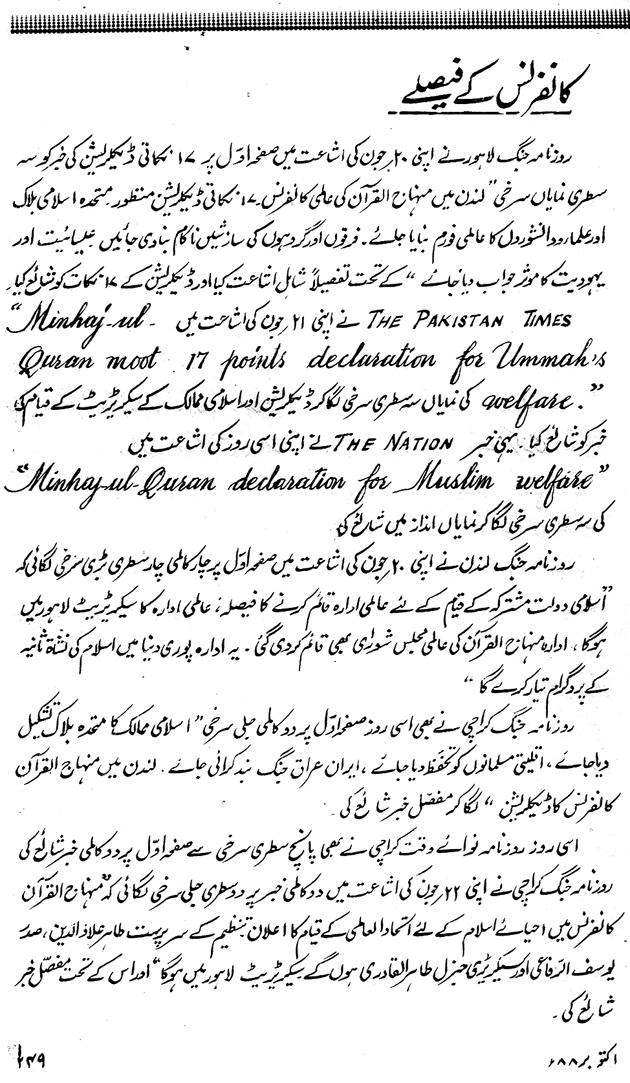 کانفرنس کے فیصلے
روزنامہ جنگ لاہور نے اپنی ۲۰ جون کی اشاعت میں صفحہ اوّل پر ۱۷ نکاتی ڈیکلریشن کی خبر کو سہ
سطری نمایاں سرخی "لندن میں منہاج القرآن کی عالمی کانفرنس۔ ۱۷ نکاتی ڈیکلریشن منظور۔ متحدہ اسلامی بلاک
اور علماء و دانشوروں کا عالمی فورم بنایا جائے۔ فرقوں اور گروہوں کی سازشیں ناکام بنادی جائیں عیسائیت اور
یہودیت کا موثر جواب دیا جائے" کے تحت تفصیلاً شامل اشاعت کیا اور ڈیکلریشن کے ۱۷ نکات کو شائع کیا۔
THE PAKISTAN TIMES نے اپنی ۲۱ جون کی اشاعت میں "Minhaj-ul-
Quran moot 17 points declaration for Ummah's
welfare." کی نمایاں سہ سطری سرخی لگا کر ڈیکلریشن اور اسلامی ممالک کے سیکرٹریٹ کے قیام کی
خبر کو شائع کیا۔ یہی خبر THE NATION نے اپنی اسی روز کی اشاعت میں
"Minhaj-ul-Quran declaration for Muslim welfare"
کی سہ سطری سرخی لگا کر نمایاں انداز میں شائع کی
روزنامہ جنگ لندن نے اپنی ۲۰ جون کی اشاعت میں صفحہ اوّل پر چار کالمی چار سطری بڑی سرخی لگائی کہ
"اسلامی دولت مشترکہ کے قیام کے لئے عالمی ادارہ قائم کرنے کا فیصلہ، عالمی ادارہ کا سیکرٹریٹ لاہور میں
ہوگا، ادارہ منہاج القرآن کی عالمی مجلس شوریٰ بھی قائم کر دی گئی۔ یہ ادارہ پوری دنیا میں اسلام کی نشاۃ ثانیہ
کے پروگرام تیار کرے گا"
روزنامہ جنگ کراچی نے بھی اسی روز صفحہ اوّل پر دو کالمی جلی سرخی "اسلامی ممالک کا متحدہ بلاک تشکیل
دیا جائے، اقلیتی مسلمانوں کو تحفظ دیا جائے، ایران عراق جنگ بند کرائی جائے۔ لندن میں منہاج القرآن
کانفرنس کا ڈیکلریشن" لگا کر مفصل خبر شائع کی۔
اسی روز روزنامہ نوائے وقت کراچی نے بھی پانچ سطری سرخی سے صفحہ اوّل پر دو کالمی خبر شائع کی
روزنامہ جنگ کراچی نے اپنی ۲۲ جون کی اشاعت میں دو کالمی خبر پر دو سطری جلی سرخی لگائی کہ "منہاج القرآن
کانفرنس میں احیائے اسلام کے لئے اتحاد العالمی کے قیام کا اعلان تنظیم کے سرپرست طاہر علاؤالدین، صدر
یوسف الرفاعی اور سیکرٹری جنرل طاہر القادری ہوں گے سیکرٹریٹ لاہور میں ہوگا" اور اس کے تحت مفصل خبر
شائع کی۔
اکتوبر ۸۸ء